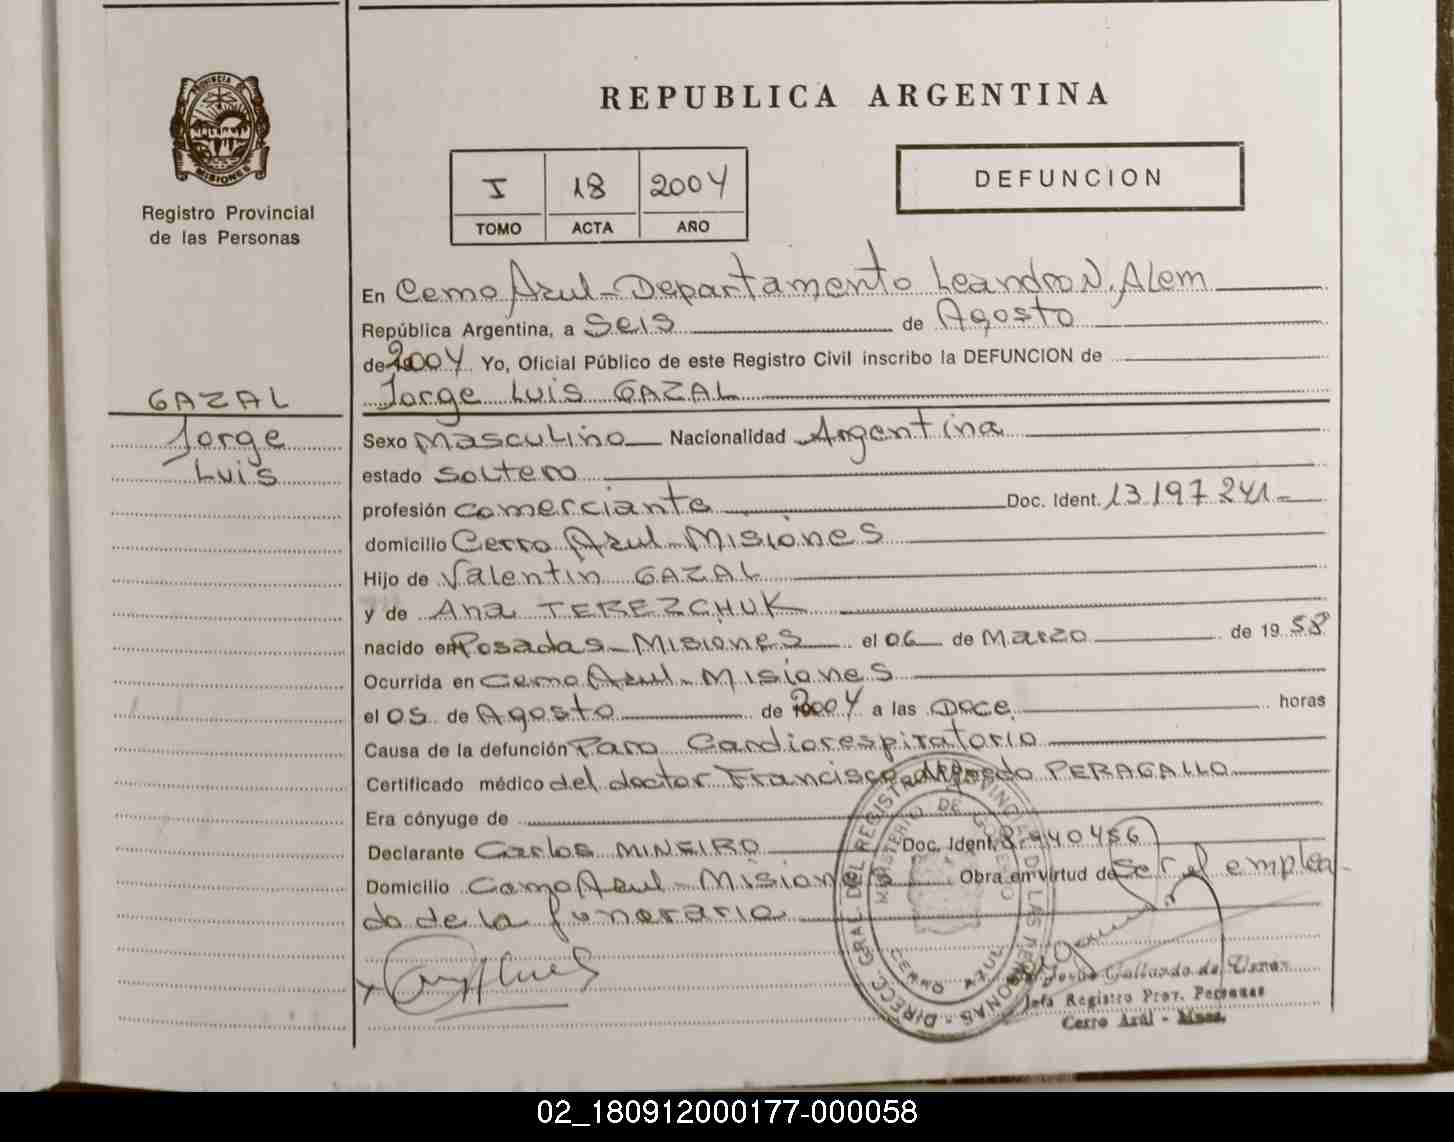 PROVINCIA DE
MISIONES
Registro Provincial
de las Personas
GAZAL
Jorge
Luis
REPUBLICA ARGENTINA
I 18 2004
TOMO ACTA AÑO
DEFUNCION
En Cerro Azul - Departamento Leandro N. Alem
República Argentina, a Seis de Agosto
de 2004 Yo, Oficial Público de este Registro Civil inscribo la DEFUNCION de
Jorge Luis GAZAL
Sexo Masculino Nacionalidad Argentina
estado Soltero
profesión Comerciante Doc. Ident. 13.197.241-
domicilio Cerro Azul - Misiones
Hijo de Valentín GAZAL
y de Ana TEREZCHUK
nacido en Posadas - Misiones el 06 de Marzo de 19 58
Ocurrida en Cerro Azul - Misiones
el 05 de Agosto de 2004 a las Doce horas
Causa de la defunción Paro Cardiorespiratorio
Certificado médico del doctor Francisco PERAGALLO
Era cónyuge de
Declarante Carlos MINEIRO Doc. Ident. 8.940.456
Domicilio Cerro Azul - Misiones Obra en virtud de Ser el emplea-
do de la funeraria
DIREC. GRAL. DEL REGISTRO PROVINCIAL DE LAS PERSONAS
MINISTERIO DE GOBIERNO
CERRO AZUL
Gallardo de
Jefa Registro Prov. Personas
Cerro Azul - Mnes.
02_180912000177-000058